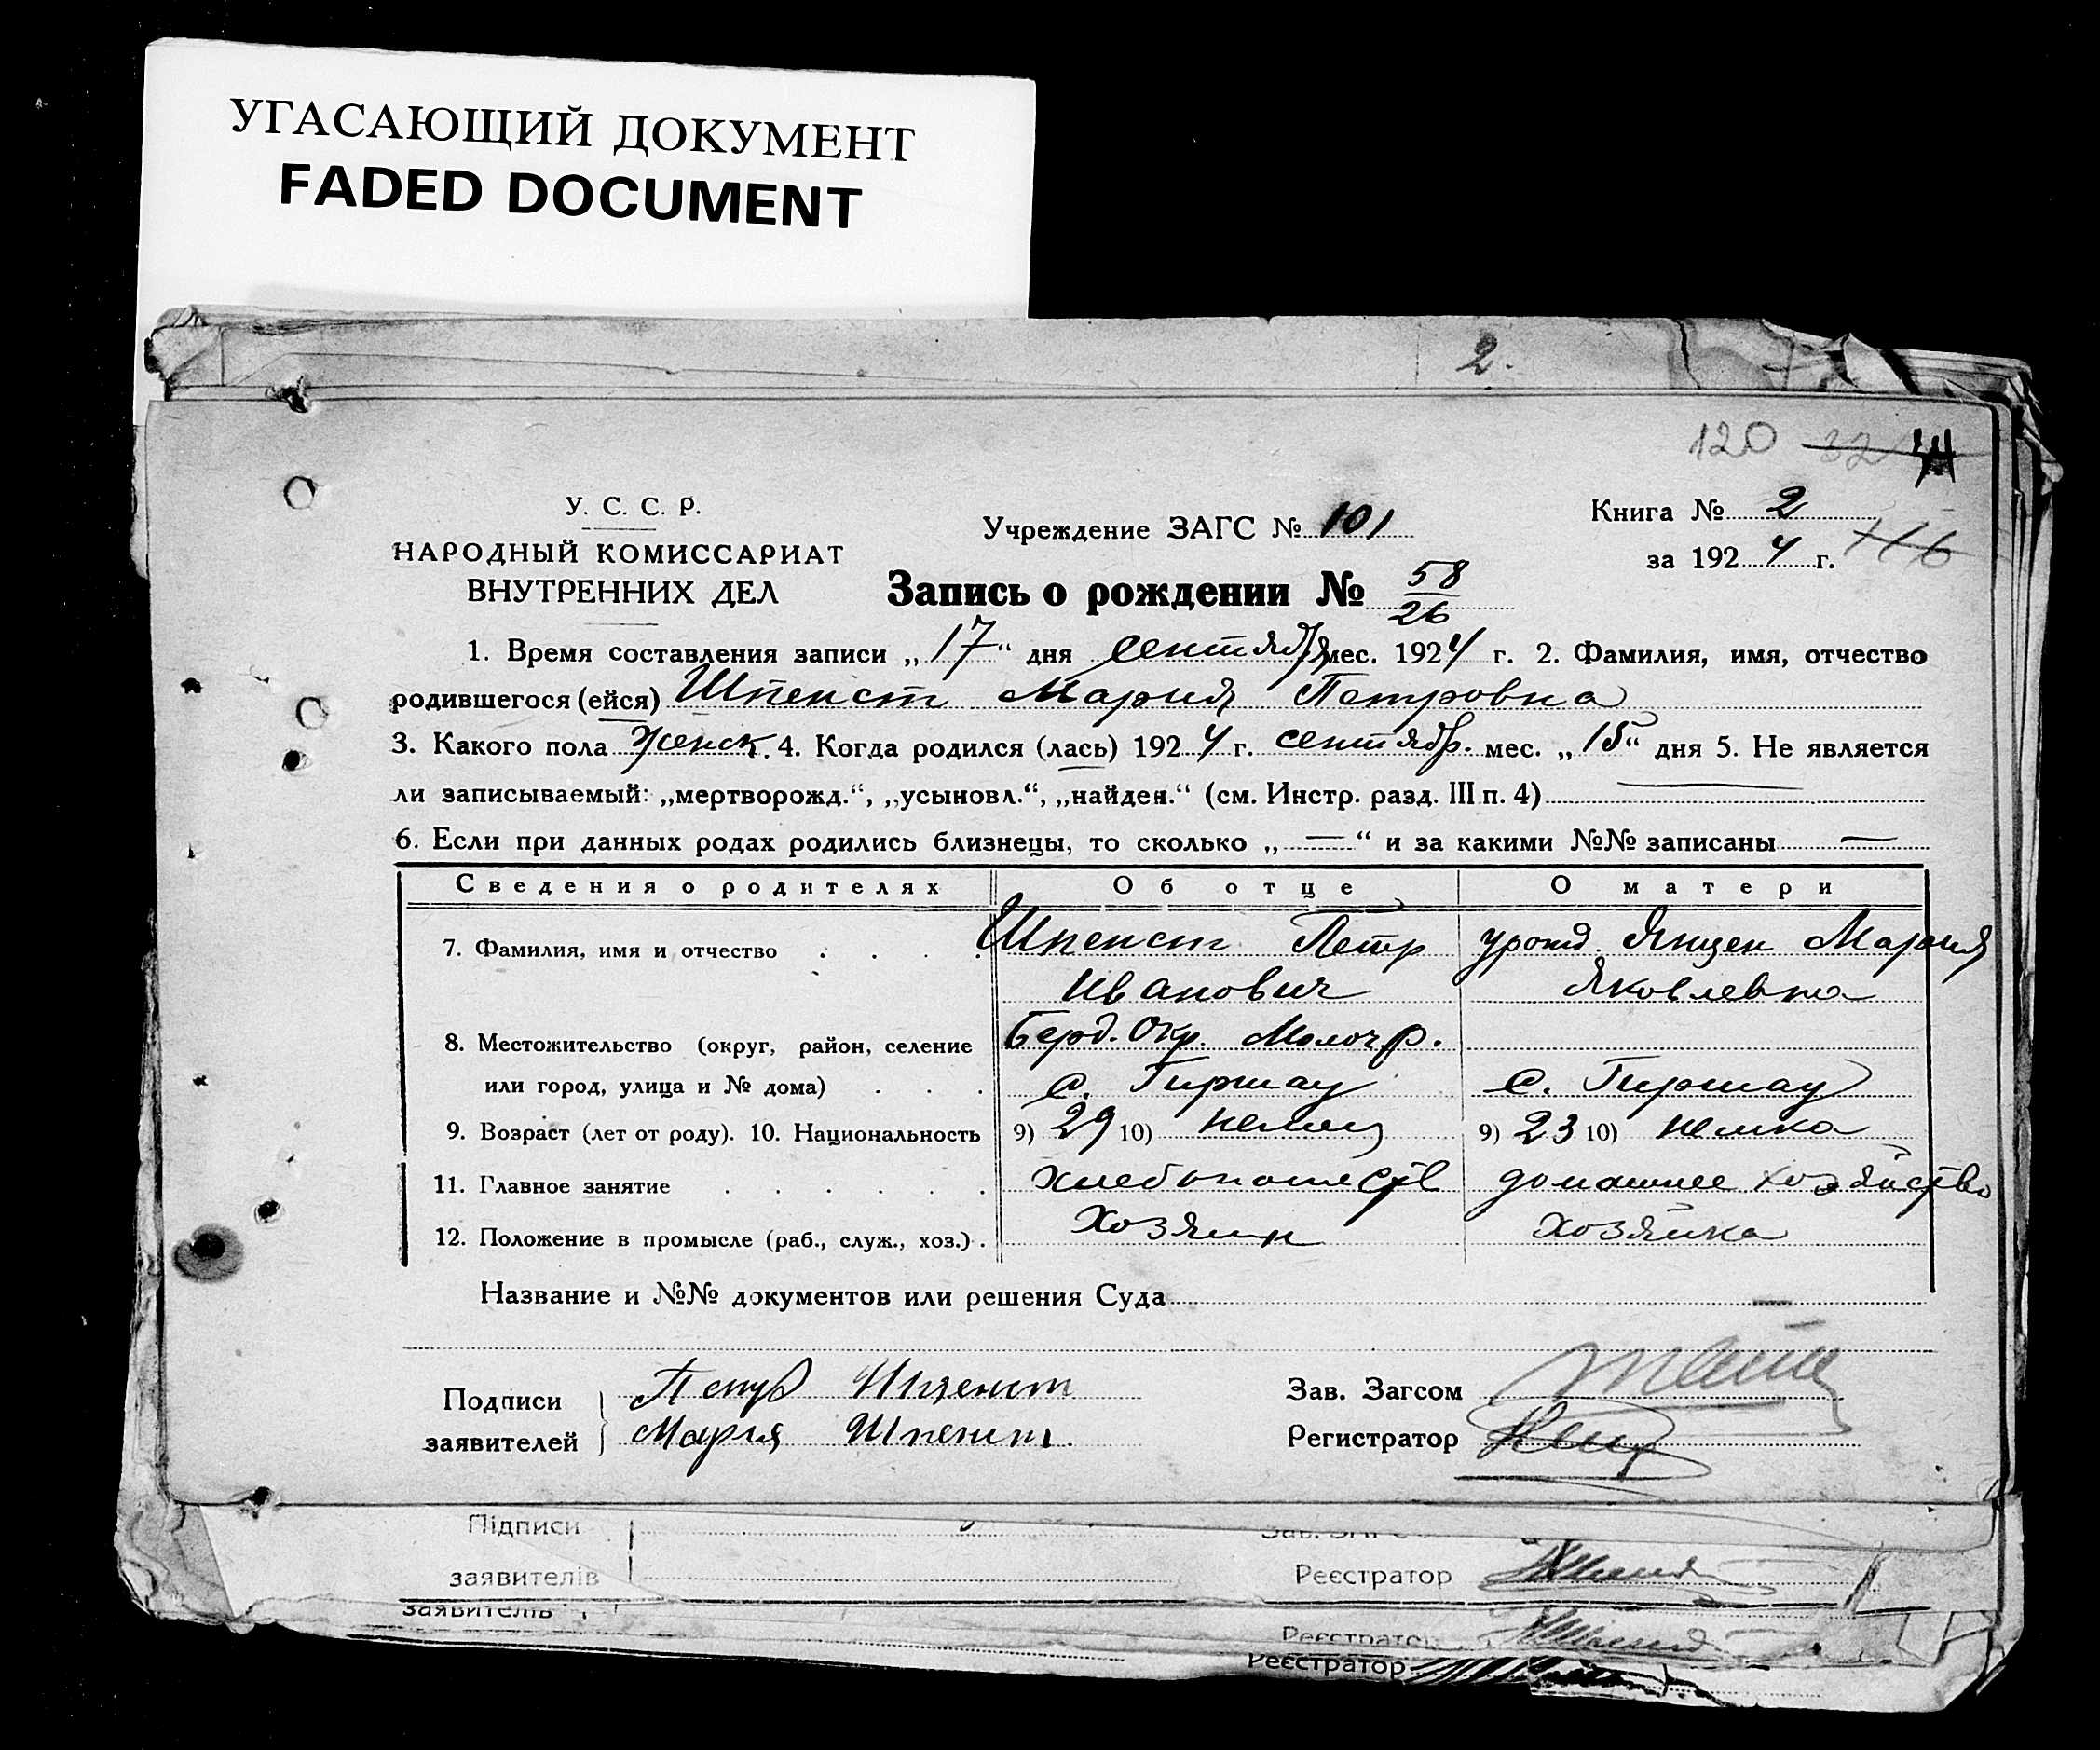 УГАСАЮЩИЙ ДОКУМЕНТ
FADED DOCUMENT
2.
120 32
У. С. С. Р.
НАРОДНЫЙ КОМИССАРИАТ
ВНУТРЕННИХ ДЕЛ
Учреждение ЗАГС № 101
Книга № 2
за 1924 г. 116
Запись о рождении № 58/26
1. Время составления записи „17“ дня сентября мес. 1924 г. 2. Фамилия, имя, отчество
родившегося (ейся) Шпенст Мария Петровна
3. Какого пола женск. 4. Когда родился (лась) 1924 г. сентябр. мес. „15“ дня 5. Не является
ли записываемый: „мертворожд.“, „усыновл.“, „найден.“ (см. Инстр. разд. III п. 4) —
6. Если при данных родах родились близнецы, то сколько „—“ и за какими №№ записаны —
Сведения о родителях Об отце О матери
7. Фамилия, имя и отчество . . . . Шпенст Петр урожд. Янцен Мария
Иванович Яковлевна
8. Местожительство (округ, район, селение Берд. Окр. Молоч р.
или город, улица и № дома) . . . с. Гиршау с. Гиршау
9. Возраст (лет от роду). 10. Национальность 9) 29 10) немец 9) 23 10) немка
11. Главное занятие . . . . . . хлебопашеств домашнее хозяйство
12. Положение в промысле (раб., служ., хоз.) . хозяин хозяйка
Название и №№ документов или решения Суда —
Подписи Петр Шпенст
заявителей Мария Шпенст
Зав. Загсом
Регистратор
Підписи
заявителів
Зав. ЗАГС
Реєстратор
заявителів
Реєстратор
Реєстратор